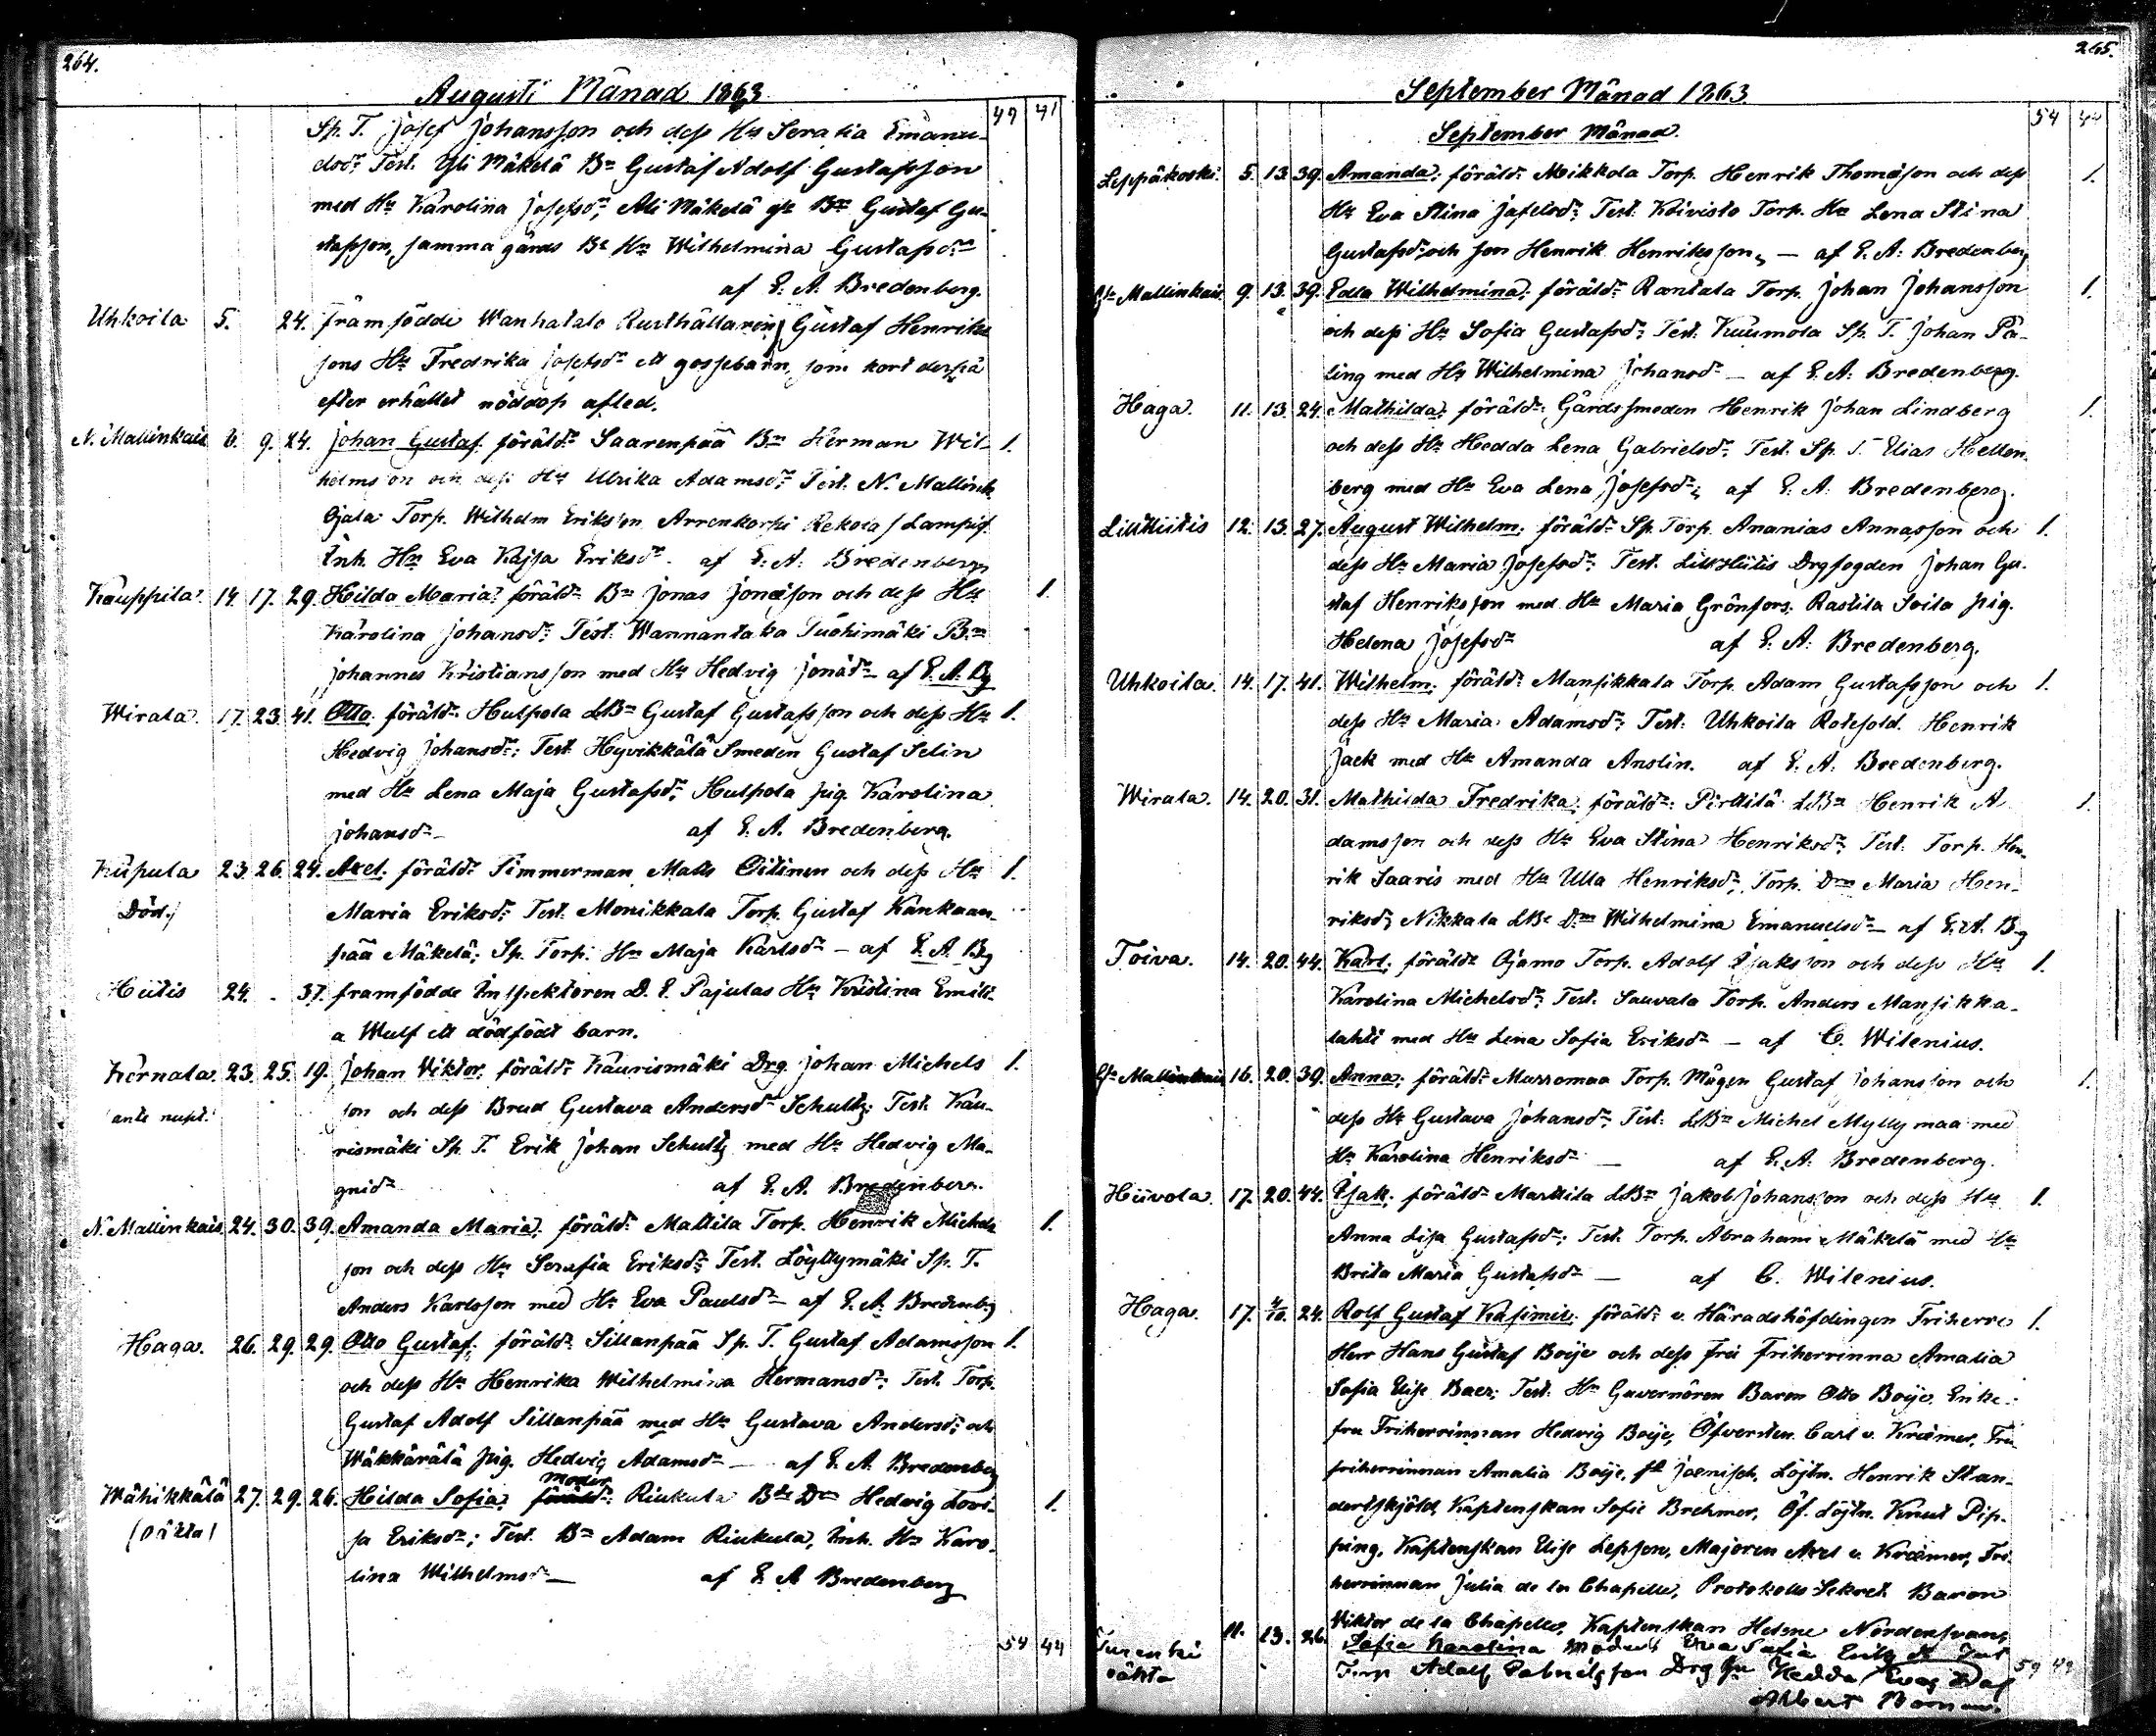 264.
Augusti Månad 1863
49 41
Sp. T. Josef Johansson och dess Hu Serafia Emanu-
elsdr Test. Yli Mäkelä Bn Gustaf Adolf Gustafsson
med Hu Karolina Josefsdr, Ali Mäkelä Bn Gustaf Gu-
stafsson, samma gårds Bs Hu Wilhelmina Gustafsdr
af E. A. Bredenberg.
Uhkoila 5. 24. framfödde Wanhatalo Rusthållaren Gustaf Henriks
sons Hu Fredrika Josefsdr ett gossebarn, som kort derpå
efter erhållet nöddop afled.
N. Mallinkais 6. 9. 24. Johan Gustaf föräldr Saarenpää Bn Herman Wil- 1.
helmsson och dess Hu Ulrika Adamsdr Test. N. Mallink
Ojala Torp. Wilhelm Eriksson Arrenkorpi Rekola / Lampis.
Inh. Hu Eva Kajsa Eriksdr. af E. A. Bredenberg
Kauppila. 14. 17. 29. Hilda Maria. föräldr Bn Jonas Jonasson och dess Hu 1.
Karolina Johansdr; Test. Wannantaka Tuohimäki Bn
Johannes Kristiansson med Hu Hedvig Jonådr - af E. A. Bg
Wirala. 17. 23. 41. Otto. föräldr. Hulpola LBn Gustaf Gustafsson och dess Hu 1.
Hedvig Johansdr; Test. Hyvikkälä Smeden Gustaf Selin
med Hu Lena Maja Gustafsdr, Hulpola pig. Karolina
Johansdr - af E. A. Bredenberg.
Kiipula 23. 26. 24. Axel. föräldr Timmerman Matts Oitinen och dess Hu 1.
Död./ Maria Eriksdr; Test. Monikkala Torp. Gustaf Kankaan-
pää Mäkelä; Sp. Torp. Hu Maja Karlsdr - af E. A. Bg
Hiitis 24. - 37. framfödde Inspektoren D. E. Pajulas Hu Kristina Emili-
a Wulf ett dödfödt barn.
Kernala 23. 25. 19. Johan Viktor. föräldr Kaurismäki Drg. Johan Michels 1.
ante nupt. son och dess Brud Gustava Andersdr Schultz; Test. Kau-
rismäki Sp. T. Erik Johan Schultz med Hu Hedvig Ma-
gnidr af E. A. Bredenberg.
N. Mallinkais 24. 30. 39. Amanda Maria. föräldr Mattila Torp. Henrik Michels 1.
son och dess Hu Serafia Eriksdr; Test. Löyllymäki Sp. T.
Anders Karlsson med Hu Eva Paulsdr - af E. A. Bredenberg
Haga. 26. 29. 29. Otto Gustaf; föräldr. Sillanpää Sp. T. Gustaf Adamsson 1.
och dess Hu Henrika Wilhelmina Hermansdr; Test. Torp.
Gustaf Adolf Sillanpää med Hu Gustava Andersdr och
Wäkkärälä pig. Hedvig Adamsdr - af E. A. Bredenberg
moder
Mähikkälä 27. 29. 26. Hilda Sofia; föräldr: Riukula Bds Dtr Hedvig Lovi- 1.
(oäkta) sa Eriksdr; Test. Bn Adam Riukula, Inh. Hu Karo-
lina Wilhelmsdr - af E. A. Bredenberg
54 44
265.
September Månad 1863.
54 44
September Månad.
Leppäkoski. 5. 13. 39. Amanda; föräldr Meikkola Torp. Henrik Thomasson och dess 1.
Hu Eva Stina Jafetsdr; Test. Koivisto Torp. Hu Lena Stina
Gustafsdr och son Henrik Henriksson, - af E. A. Bredenberg
Mallinkais 9. 13. 39. Edla Wilhelmina; föräldr Rantala Torp. Johan Johansson 1.
och dess Hu Sofia Gustafsdr; Test. Kuumola Sp. T. Johan På-
ling med Hu Wilhelmina Johansdr - af E. A. Bredenberg.
Haga. 11. 13. 24. Mathilda; föräldr. Gårdssmeden Henrik Johan Lindberg 1.
och dess Hu Hedda Lena Gabrielsdr; Test. Sp. T. Elias Hellen-
berg med Hu Eva Lena Josefsdr; af E. A. Bredenberg.
LillHiitis 12. 13. 27. August Wilhelm; föräldr Sp. Torp. Ananias Annasson och 1.
dess Hu Maria Josefsdr; Test. LillHiitis Drgfogden Johan Gu-
staf Henriksson med Hu Maria Grönfors. Rastila Soila pig.
Helena Josefsdr af E. A. Bredenberg.
Uhkoila. 14. 17. 41. Wilhelm; föräldr Mansikkala Torp. Adam Gustafsson och 1.
dess Hu Maria Adamsdr; Test. Uhkoila Rotesold. Henrik
Jack med Hu Amanda Anolin. af E. A. Bredenberg.
Wirala. 14. 20. 31. Mathilda Fredrika; föräldr. Pirttilä LBn Henrik A- 1.
damsson och dess Hu Eva Stina Henriksdr; Test. Torp. Hen-
rik Saaris med Hu Ulla Henriksdr, Torp. Dtr Maria Hen-
riksdr, Nikkala LBs Dtr Wilhelmina Emanuelsdr - af E. A. Bg
Toiva. 14. 20. 44. Karl; föräldr Ojamo Torp. Adolf Isaksson och dess Hu 1.
Karolina Michelsdr; Test. Sauvala Torp. Anders Mansikka-
lahti med Hu Lena Sofia Eriksdr - af C. Wilenius.
Mallinkais 16. 20. 39. Anna; föräldr Murromaa Torp. Mågen Gustaf Johansson och 1.
dess Hu Gustava Johansdr; Test. LBn Michel Myllymaa med
Hu Karolina Henriksdr - af E. A. Bredenberg.
Hiivola. 17. 20. 44. Isak; föräldr Marttila LBn Jakob Johansson och dess Hu 1.
Anna Lisa Gustafsdr; Test. Torp. Abraham Mäkelä med Hu
Brita Maria Gustafsdr - af C. Wilenius.
Haga. 17. 4/10. 24. Rolf Gustaf Kasimir; föräldr v. Häradshöfdingen Friherre 1.
Herr Hans Gustaf Boije och dess Fru Friherrinna Amalia
Sofia Elise Baer; Test. Hr Guvernören Baron Otto Boije, Enke-
fru Friherrinnan Hedvig Boije, Öfversten Carl v. Kræmer, Fru
friherrinnan Amalia Boije, fd Jænisch, Löjtn. Henrik Stan-
dertskjöld, Kaptenskan Sofie Brehmer, Öf. Löjtn. Knut Pip-
ping, Kaptenskan Elise Lepsen, Majoren Axel v. Kræmer, Fri-
herrinnan Julia de la Chapelle, Protokolls Sekret. Baron
Viktor de la Chapelle, Kaptenskan Helene Nordensvan,
Turenki 11. 13. 26. Sofia Karolina Modern Eva Sofia
oäkta Torp Adolf Gabrielsson Drg Hu Hedda
59 49
Albert